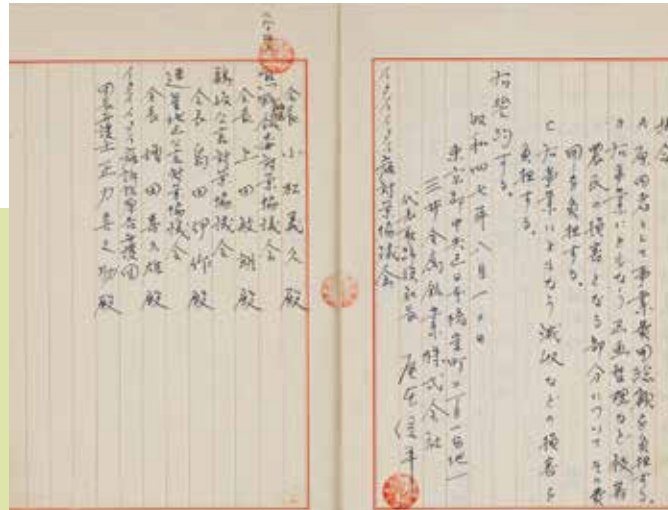 場合
A 原因者として事業費用総額を負担する。
B 右事業にともなう区画整理など被害
農民の損害となる部分についてその費
用を負担する。
C 右事業にともなう減収などの損害を
負担する。
右誓約する。
昭和四七年八月一〇日
東京都中央区日本橋室町二丁目一番地一
三井金属鉱業株式会社
代表取締役社長 尾本信平
イタイイタイ病対策協議会
会長 小松義久殿
対策協議会
会長 上田 殿
鉱害対策協議会
会長 殿
公害対策協議会
会長 殿
イタイイタイ病訴訟弁護団
団長弁護士 正力喜之助殿